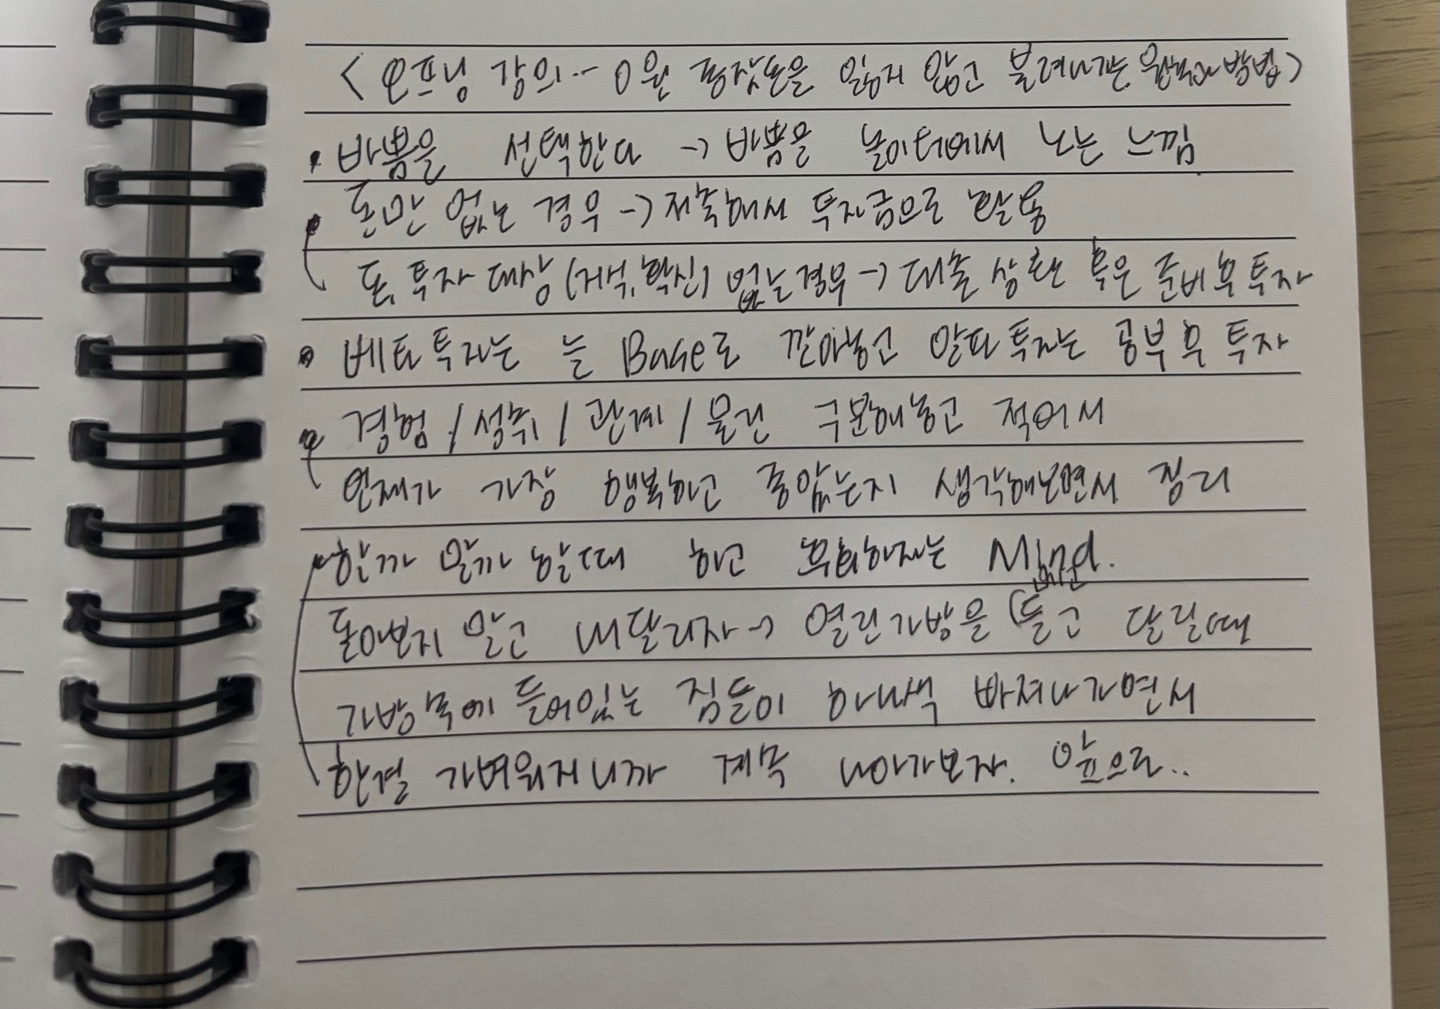 <오프닝 강의 - 0원 통장 돈을 잃지 않고 불려나가는 방법>
• 바쁨을 선택한다 -> 바쁨을 놀이터에서 노는 느낌
• 돈만 없는 경우 -> 저축해서 투자금으로 활용
돈, 투자 대상(지식, 확신) 없는 경우 -> 대출 상환 혹은 준비 후 투자
• 베타투자는 늘 Base로 깐아놓고 알파투자는 공부 후 투자
• 경험 / 성취 / 관계 / 물건 구분해놓고 적어서
언제가 가장 행복하고 좋았는지 생각해보면서 정리
• 할까 말까 할 때 하고 후회하자는 Mind.
돌아보지 말고 내달리자 -> 열린 가방을 들고 달릴 때
가방 속에 들어있는 짐들이 하나씩 빠져나가면서
한결 가벼워지니까 계속 나아가보자. 앞으로..